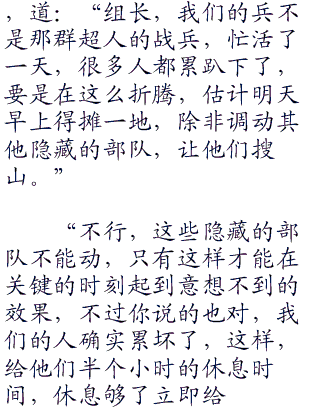 ，道：“组长，我们的兵不
是那群超人的战兵，忙活了
一天，很多人都累趴下了，
要是在这么折腾，估计明天
早上得摊一地，除非调动其
他隐藏的部队，让他们搜
山。”
“不行，这些隐藏的部
队不能动，只有这样才能在
关键的时刻起到意想不到的
效果，不过你说的也对，我
们的人确实累坏了，这样，
给他们半个小时的休息时
间，休息够了立即给